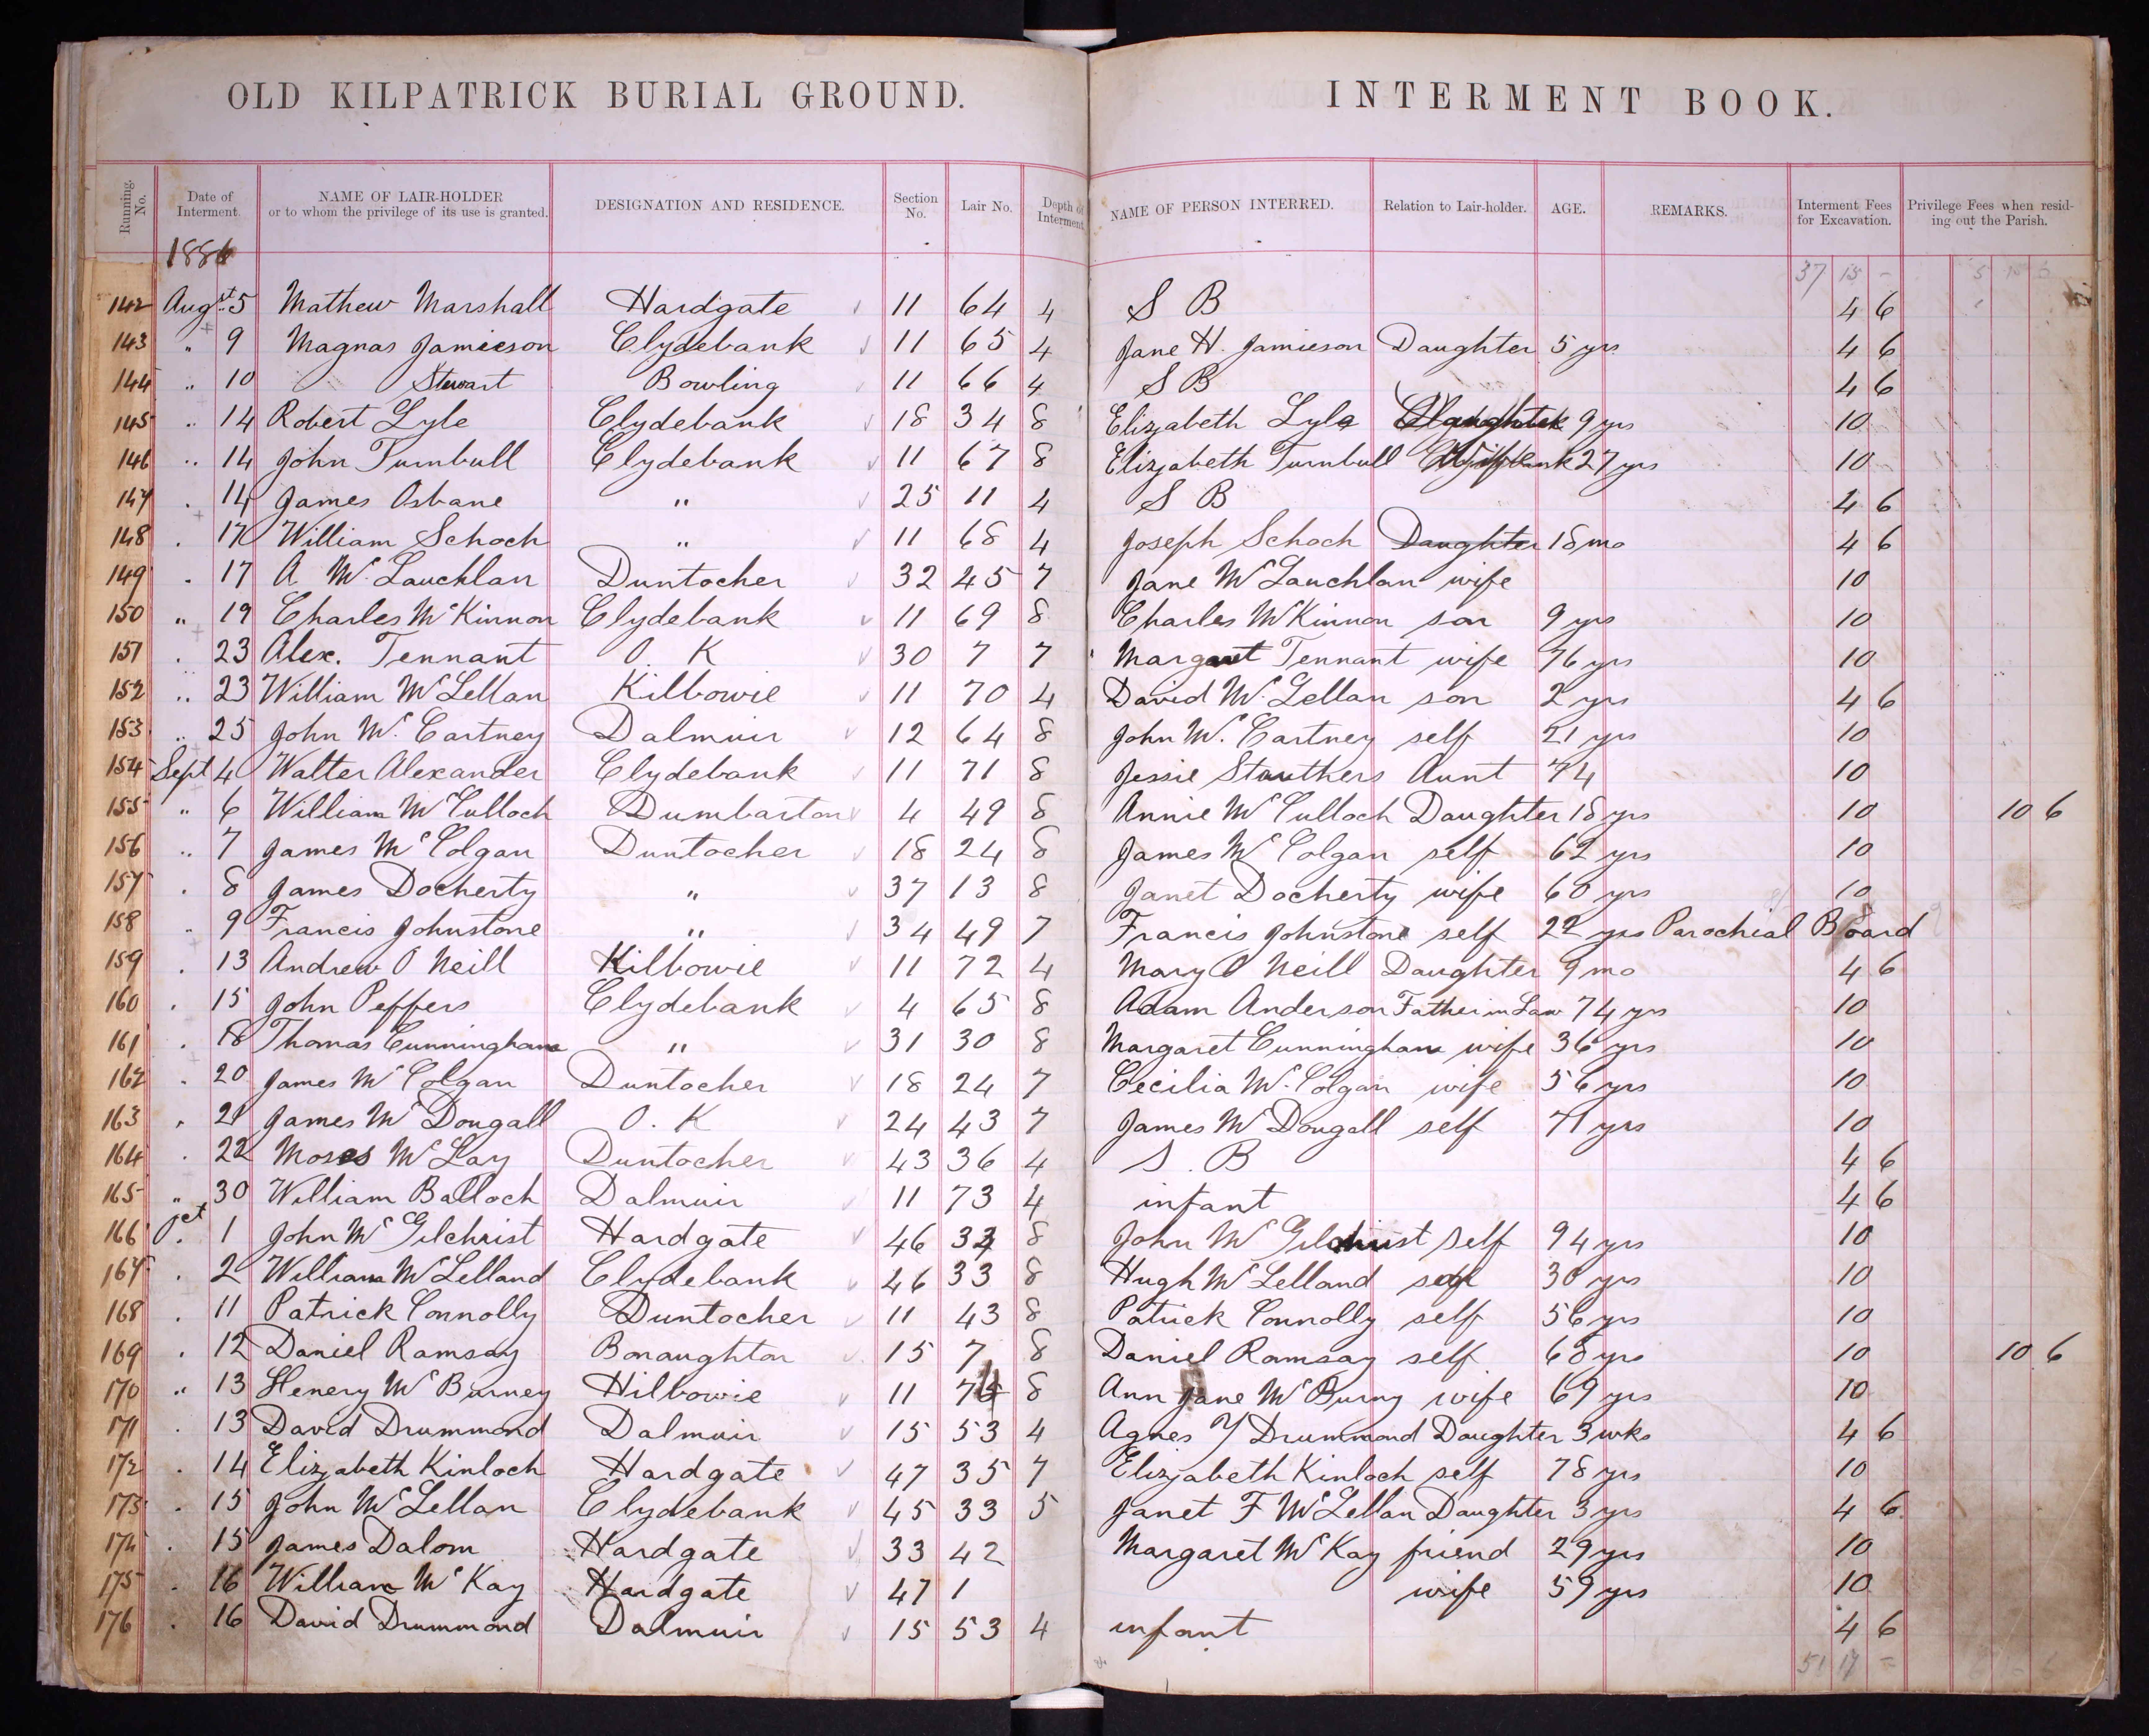 OLD KILPATRICK BURIAL GROUND. INTERMENT BOOK.
Running No. Date of Interment. NAME OF LAIR-HOLDER or to whom the privilege of its use is granted. DESIGNATION AND RESIDENCE. Section No. Lair No. Depth of Interment NAME OF PERSON INTERRED. Relation to Lair-holder. AGE. REMARKS. Interment Fees for Excavation. Privilege Fees when residing out the Parish.
1886
37 15 - 5 10 6
142 Augst 5 Mathew Marshall Hardgate 11 64 4 S B 4 6
143 " 9 Magnas Jamieson Clydebank 11 65 4 Jane H. Jamieson Daughter 5 yrs 4 6
144 " 10 Stewart Bowling 11 66 4 S B 4 6
145 " 14 Robert Lyle Clydebank 18 34 8 Elizabeth Lyle Daughter 9 yrs 10
146 " 14 John Turnbull Clydebank 11 67 8 Elizabeth Turnbull Wife 27 yrs 10
147 . 14 James Osbane " 25 11 4 S B 4 6
148 . 17 William Schoch " 11 68 4 Joseph Schoch Daughter 18 mo 4 6
149 . 17 A Mc Lauchlan Duntocher 32 45 7 Jane Mc Lauchlan wife 10
150 " 19 Charles Mc Kinnon Clydebank 11 69 8 Charles Mc Kinnon son 9 yrs 10
151 . 23 Alex. Tennant O. K 30 7 7 Margaret Tennant wife 76 yrs 10
152 " 23 William Mc Lellan Kilbowie 11 70 4 David Mc Lellan son 2 yrs 4 6
153 " 25 John Mc Cartney Dalmuir 12 64 8 John Mc Cartney self 21 yrs 10
154 Sept 4 Walter Alexander Clydebank 11 71 8 Jessie Stauthers Aunt 74 10
155 " 6 William Mc Culloch Dumbarton 4 49 8 Annie Mc Culloch Daughter 18 yrs 10 10 6
156 " 7 James Mc Colgan Duntocher 18 24 8 James Mc Colgan self 62 yrs 10
157 . 8 James Docherty " 37 13 8 Janet Docherty wife 60 yrs 10
158 . 9 Francis Johnstone " 34 49 7 Francis Johnstone self 22 yrs Parochial Board
159 . 13 Andrew O Neill Kilbowie 11 72 4 Mary O Neill Daughter 9 mo 4 6
160 . 15 John Peffers Clydebank 4 65 8 Adam Anderson Father in Law 74 yrs 10
161 . 18 Thomas Cunningham " 31 30 8 Margaret Cunningham wife 36 yrs 10
162 . 20 James Mc Colgan Duntocher 18 24 7 Cecilia Mc Colgan wife 56 yrs 10
163 . 21 James Mc Dougall O. K 24 43 7 James Mc Dougall self 71 yrs 10
164 . 22 Moses Mc Lay Duntocher 43 36 4 S. B 4 6
165 " 30 William Balloch Dalmuir 11 73 4 infant 4 6
166 Oct. 1 John Mc Gilchrist Hardgate 46 34 8 John Mc Gilchrist self 94 yrs 10
167 . 2 William Mc Lelland Clydebank 46 33 8 Hugh Mc Lelland self 30 yrs 10
168 . 11 Patrick Connolly Duntocher 11 43 8 Patrick Connolly self 56 yrs 10
169 . 12 Daniel Ramsay Bonaughton 15 7 8 Daniel Ramsay self 68 yrs 10 10 6
170 " 13 Henery Mc Burney Hilbowie 11 74 8 Ann Jane Mc Burny wife 69 yrs 10
171 . 13 David Drummond Dalmuir 15 53 4 Agnes Y Drummond Daughter 3 wks 4 6
172 . 14 Elizabeth Kinloch Hardgate 47 35 7 Elizabeth Kinloch self 78 yrs 10
173 . 15 John Mc Lellan Clydebank 45 33 5 Janet F Mc Lellan Daughter 3 yrs 4 6
174 . 15 James Dalom Hardgate 33 42 Margaret Mc Kay friend 29 yrs 10
175 . 16 William Mc Kay Hardgate 47 1 wife 59 yrs 10
176 . 16 David Drummond Dalmuir 15 53 4 infant 4 6
51 17 -